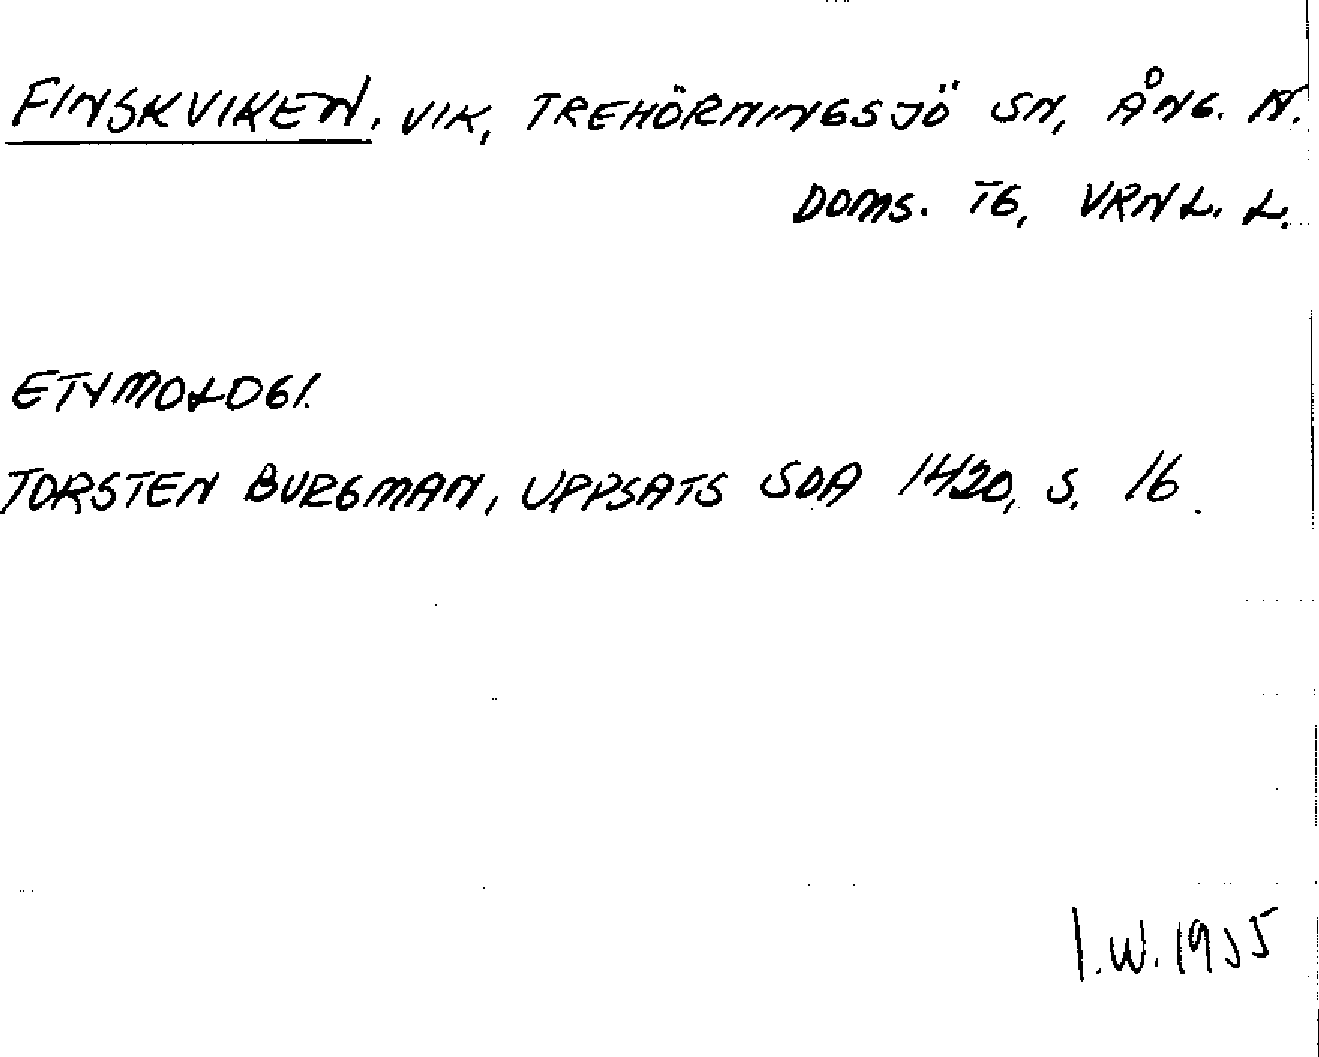 FINSKVIKEN. VIK, TREHÖRNINGSJÖ SN, ÅNG. N.
DOMS. TG, VRNL. L.
ETYMOLOGI.
TORSTEN BURGMAN, UPPSATS SOA 1420, S. 16.
I.W. 1955